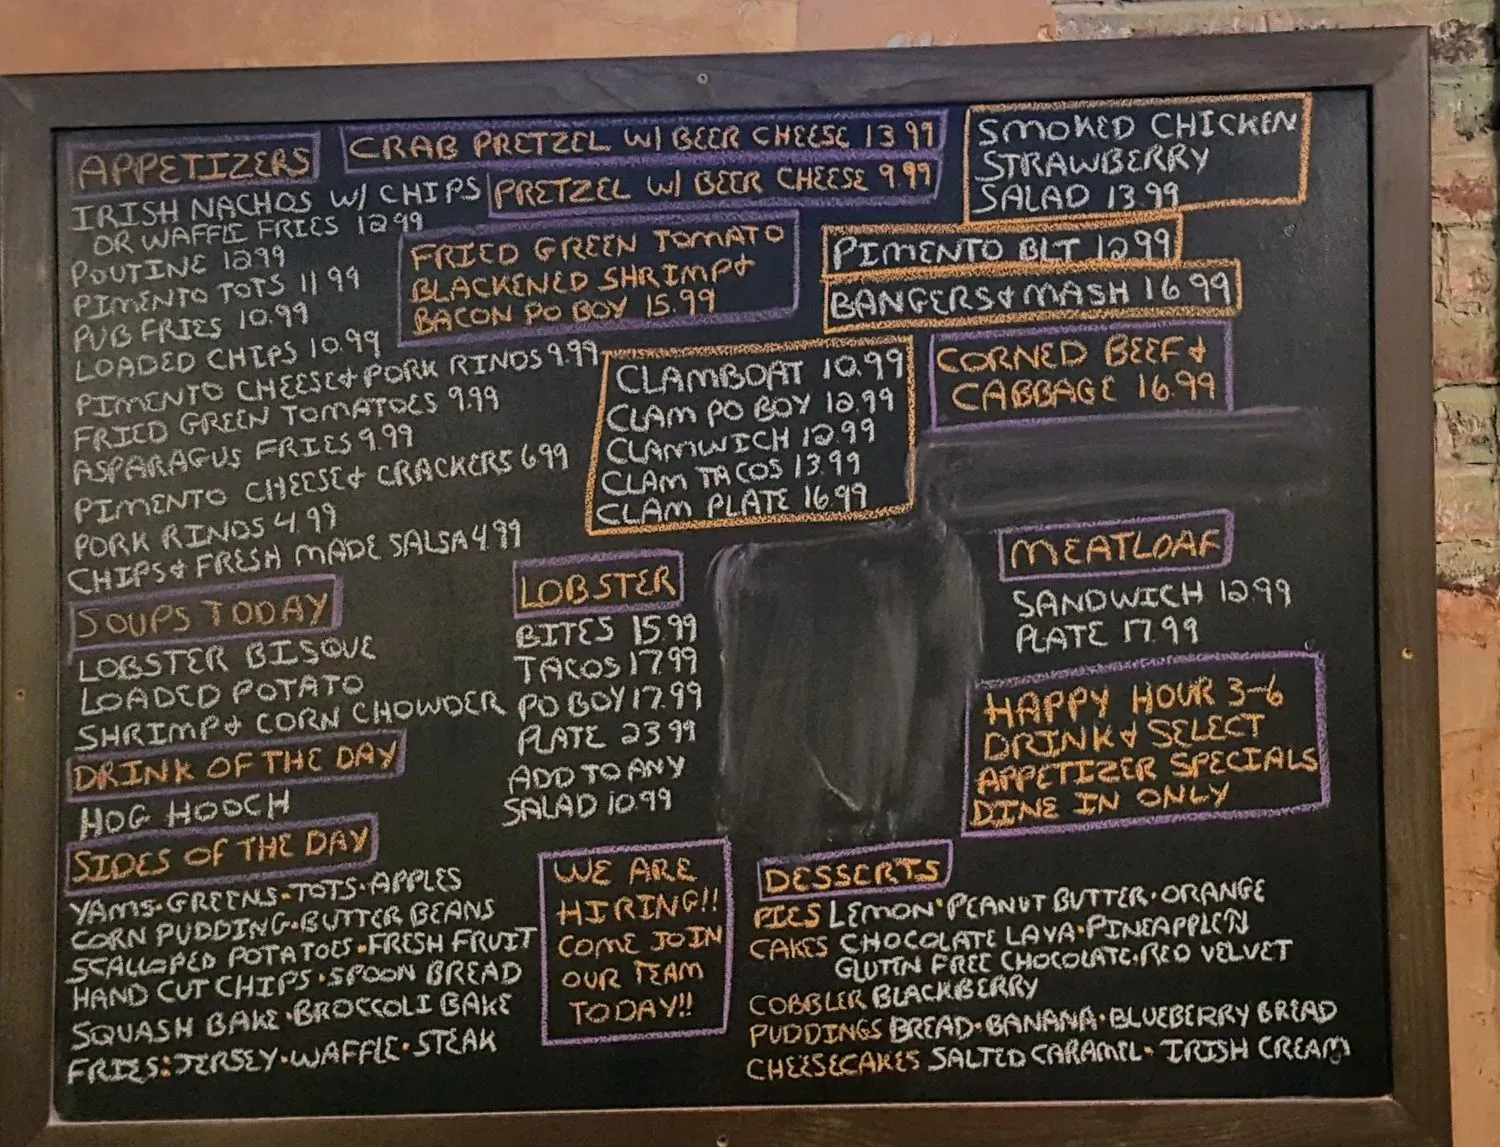 APPETIZERS
IRISH NACHOS W/ CHIPS
OR WAFFLE FRIES 12.99
POUTINE 12.99
PIMENTO TOTS 11.99
PUB FRIES 10.99
LOADED CHIPS 10.99
PIMENTO CHEESE & PORK RINDS 9.99
FRIED GREEN TOMATOES 9.99
ASPARAGUS FRIES 9.99
PIMENTO CHEESE & CRACKERS 6.99
PORK RINDS 4.99
CHIPS & FRESH MADE SALSA 4.99
CRAB PRETZEL W/ BEER CHEESE 13.99
PRETZEL W/ BEER CHEESE 9.99
FRIED GREEN TOMATO
BLACKENED SHRIMP &
BACON PO BOY 15.99
SMOKED CHICKEN
STRAWBERRY
SALAD 13.99
PIMENTO BLT 12.99
BANGERS & MASH 16.99
CORNED BEEF &
CABBAGE 16.99
CLAMBOAT 10.99
CLAM PO BOY 12.99
CLAMWICH 12.99
CLAM TACOS 13.99
CLAM PLATE 16.99
SOUPS TODAY
LOBSTER BISQUE
LOADED POTATO
SHRIMP & CORN CHOWDER
DRINK OF THE DAY
HOG HOOCH
SIDES OF THE DAY
YAMS·GREENS·TOTS·APPLES
CORN PUDDING·BUTTER BEANS
SCALLOPED POTATOES·FRESH FRUIT
HAND CUT CHIPS·SPOON BREAD
SQUASH BAKE·BROCCOLI BAKE
FRIES: JERSEY·WAFFLE·STEAK
LOBSTER
BITES 15.99
TACOS 17.99
PO BOY 17.99
PLATE 23.99
ADD TO ANY
SALAD 10.99
MEATLOAF
SANDWICH 12.99
PLATE 17.99
HAPPY HOUR 3-6
DRINK & SELECT
APPETIZER SPECIALS
DINE IN ONLY
WE ARE
HIRING!!
COME JOIN
OUR TEAM
TODAY!!
DESSERTS
PIES LEMON·PEANUT BUTTER·ORANGE
CAKES CHOCOLATE LAVA·PINEAPPLE
GLUTEN FREE CHOCOLATE·RED VELVET
COBBLER BLACKBERRY
PUDDINGS BREAD·BANANA·BLUEBERRY BREAD
CHEESECAKES SALTED CARAMEL·IRISH CREAM